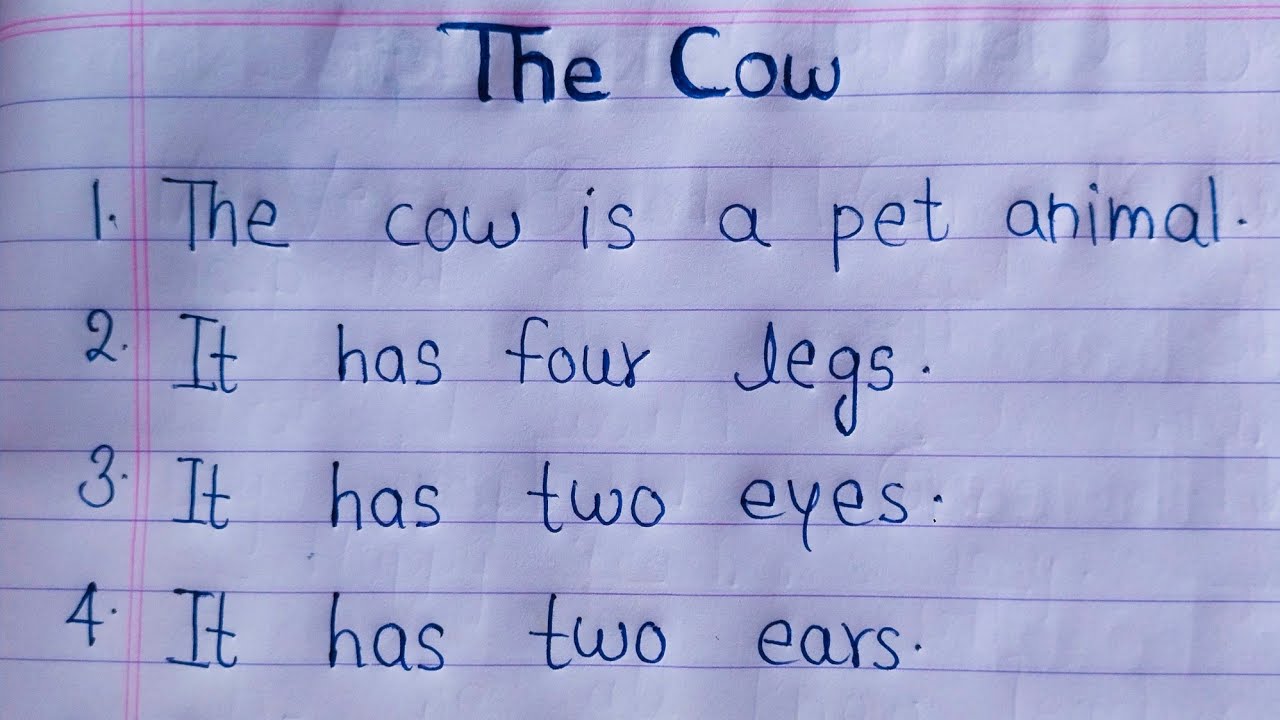 The Cow
1. The cow is a pet animal.
2. It has four legs.
3. It has two eyes.
4. It has two ears.